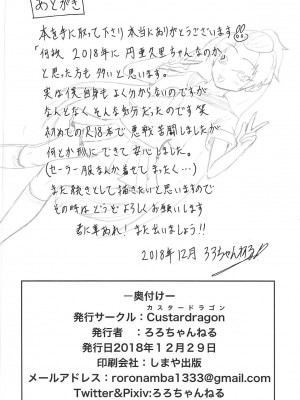 あとがき
本を手に取って下さり本当にありがとうございます!!
「何故2018年に円亜久里ちゃんなのか」
と思った方も多いと思います。
実は僕自身もよく分からないのですが
なんとなくそんな気分だったのです笑
初めてのR18本で悪戦苦闘しましたが
何とか形にできて安心しました。
(セーラー服なんか着せてまったく…)
また続きとして描きたいと思いますので
その時はどうぞよろしくお願いします
また出しましょう!!
2018年12月 ろろちゃんねる
―奥付け―
カスタードラゴン
発行サークル:Custardragon
発行者 :ろろちゃんねる
発行日2018年12月29日
印刷会社:しまや出版
メールアドレス:roronamba1333@gmail.com
Twitter&Pixiv:ろろちゃんねる